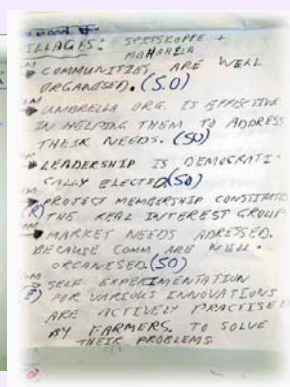 ILLAGES: SPITSKOPPE +
MOHAHELA
COMMUNITIES ARE WELL
ORGANISED. (S.O)
UMBRELLA ORG. IS EFFECTIVE
IN HELPING THEM TO ADDRESS
THEIR NEEDS. (SO)
LEADERSHIP IS DEMOCRATI-
CALLY ELECTED (SO)
PROJECT MEMBERSHIP CONSTITUTE
(R) THE REAL INTEREST GROUP
MARKET NEEDS ADRESSED.
BECAUSE COMM ARE WELL-
ORGANISED. (SO)
SELF EXPERIMENTATION
(E) FOR VARIOUS INNOVATIONS
ARE ACTIVELY PRACTISED
BY FARMERS. TO SOLVE
THEIR PROBLEMS